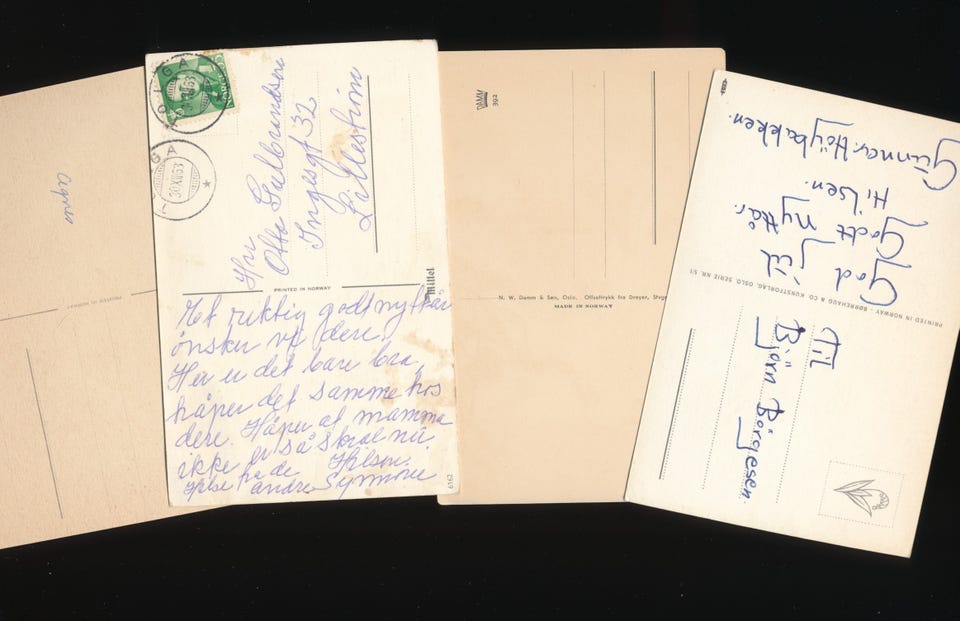 Agnes
PRINTED IN NORWAY
30 XII 63
Hr
Otto Gulbrandsen
Ingesgt 32
Lillestrøm
PRINTED IN NORWAY
Mittet
Et riktig godt nyttår
ønsker vi dere.
Her er det bare bra,
håper det samme hos
dere. Håper at mamma
ikke er så skral nu.
Hilse fra de Hilsen
andre Synnøve
6162
DAMM
392
N. W. Damm & Søn, Oslo. Offsettrykk fra Dreyer, Stvgr
MADE IN NORWAY
God jul
Godt nyttår.
Hilsen.
Gunnar Höybakken.
PRINTED IN NORWAY - BØRREHAUG & CO. KUNSTFORLAG, OSLO. SERIE NR. 5/1
Til
Björn Börgesen.